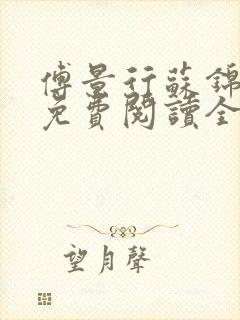 傅景行蘇錦
免費閱讀全
望月聲